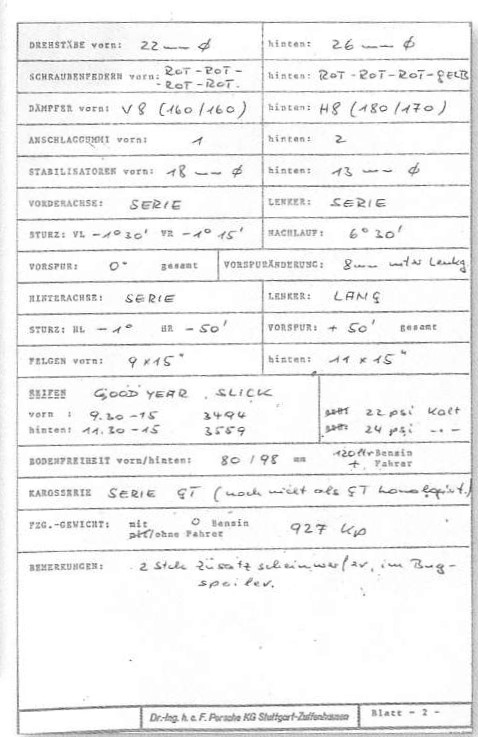 DREHSTÄBE vorn: 22 mm ∅ hinten: 26 mm ∅
SCHRAUBENFEDERN vorn: ROT-ROT- hinten: ROT-ROT-ROT-GELB
-ROT-ROT.
DÄMPFER vorn: V8 (160/160) hinten: H8 (180/170)
ANSCHLAGGUMMI vorn: 1 hinten: 2
STABILISATOREN vorn: 18 mm ∅ hinten: 13 mm ∅
VORDERACHSE: SERIE LENKER: SERIE
STURZ: VL -1°30' VR -1°15' NACHLAUF: 6°30'
VORSPUR: 0° gesamt VORSPURÄNDERUNG: 8mm unter Lenkg.
HINTERACHSE: SERIE LENKER: LANG
STURZ: HL -1° HR -50' VORSPUR: +50' gesamt
FELGEN vorn: 9 x 15" hinten: 11 x 15"
REIFEN GOOD YEAR SLICK
vorn : 9.20-15 3494 22 psi Kalt
hinten: 11.30-15 3559 24 psi -"-
BODENFREIHEIT vorn/hinten: 80 / 98 mm 120 ltr Benzin
+ Fahrer
KAROSSERIE SERIE GT (noch nicht als GT homologiert.)
FZG.-GEWICHT: mit 0 Benzin 927 Kp
mit/ohne Fahrer
BEMERKUNGEN: 2 Stck Zusatzscheinwerfer, im Bug-
speiler.
Dr.-Ing. h. c. F. Porsche KG Stuttgart-Zuffenhausen Blatt - 2 -